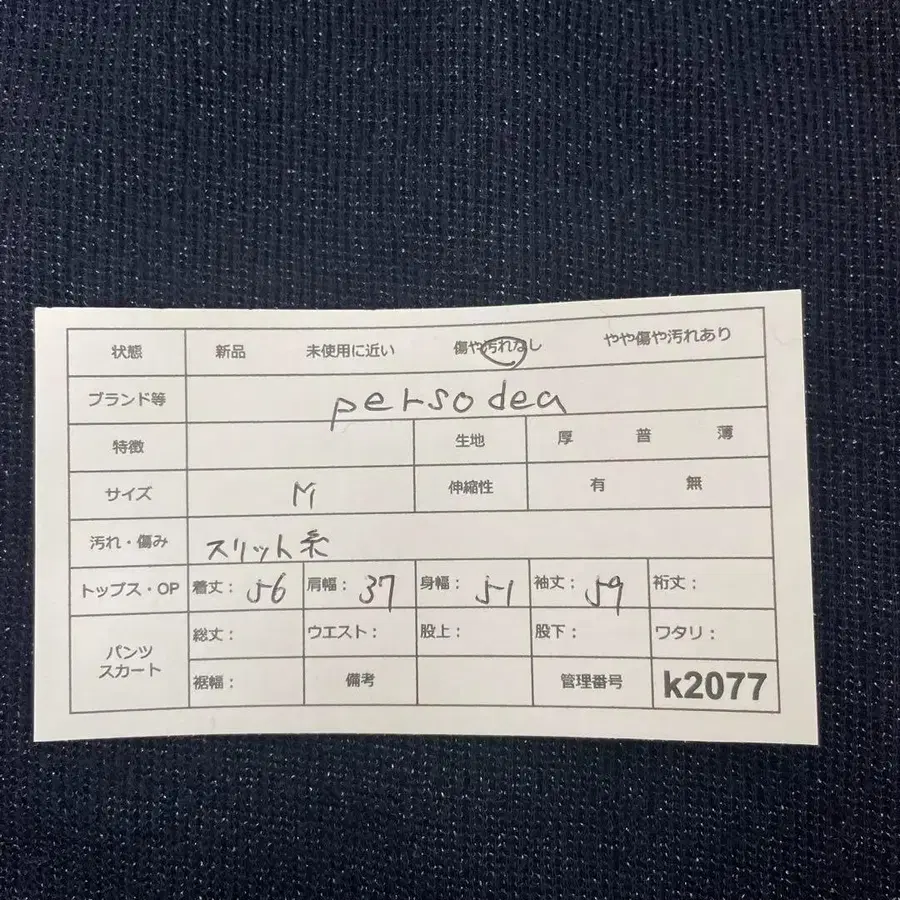 状態 新品 未使用に近い 傷や汚れなし やや傷や汚れあり
ブランド等 persodea
特徴 生地 厚 普 薄
サイズ M 伸縮性 有 無
汚れ・傷み スリット系
トップス・OP 着丈: 56 肩幅: 37 身幅: 51 袖丈: 59 裄丈:
パンツ スカート 総丈: ウエスト: 股上: 股下: ワタリ:
裾幅: 備考 管理番号 k2077